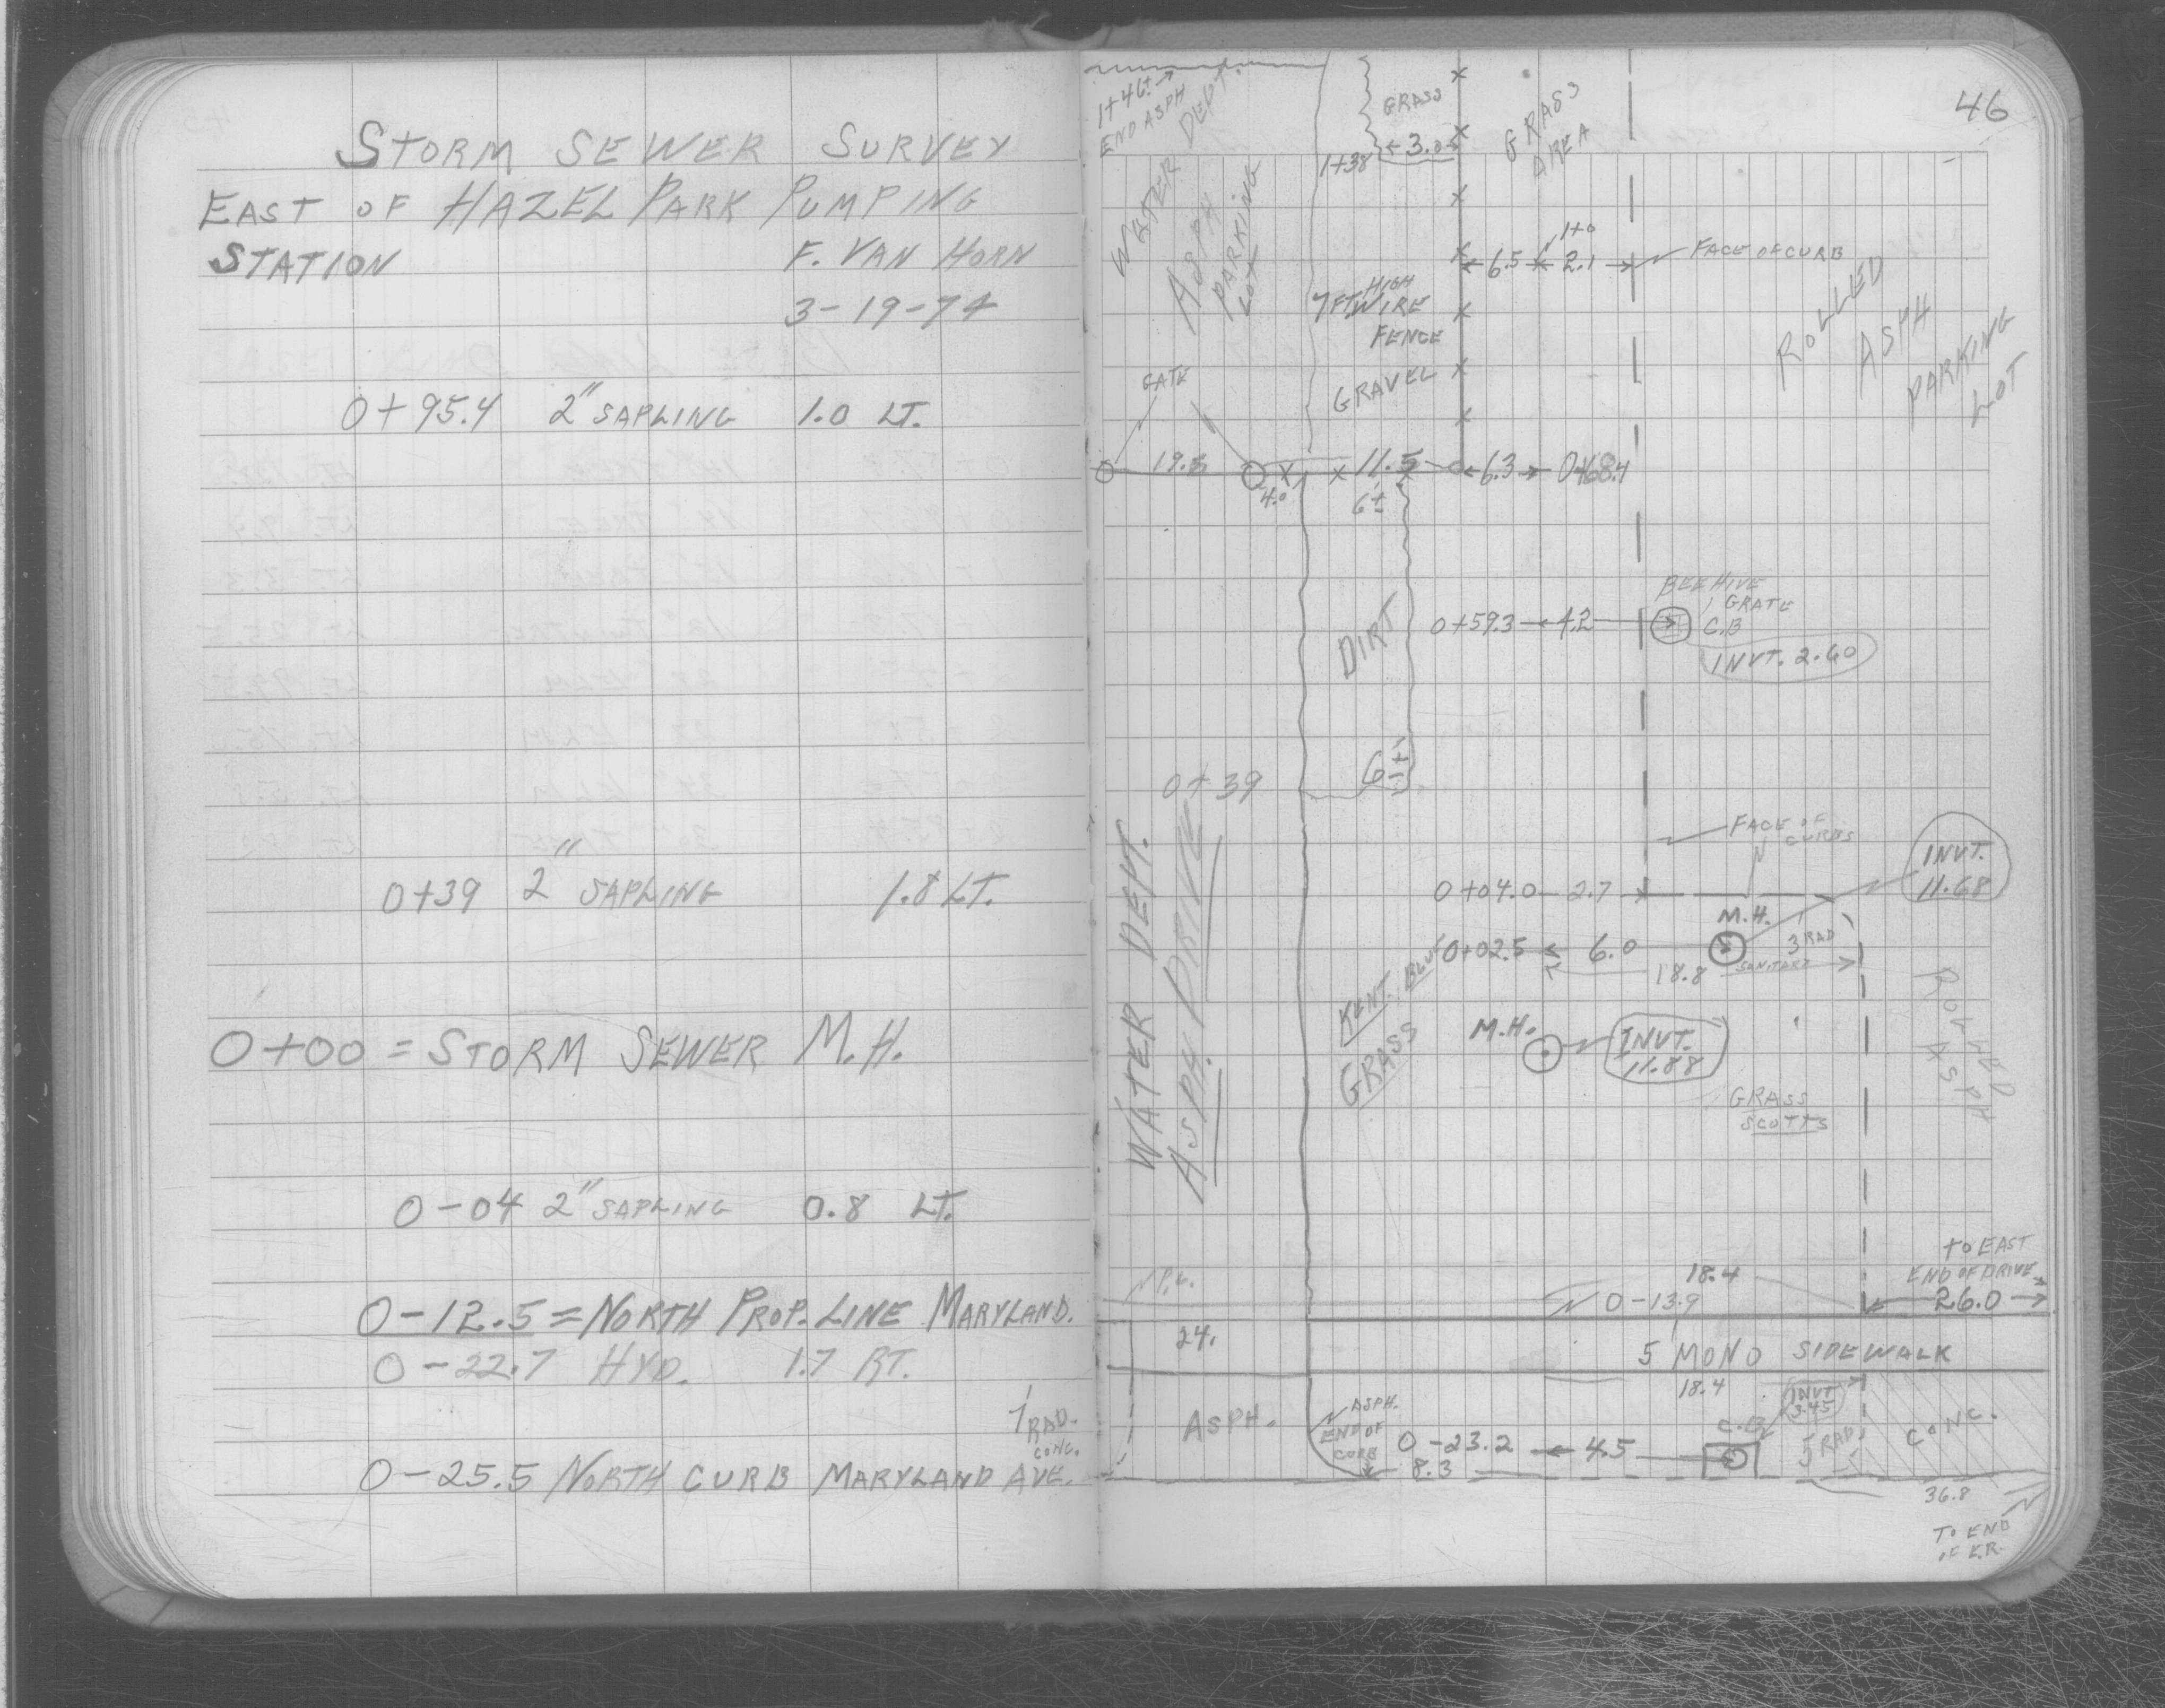 STORM SEWER SURVEY
EAST OF HAZEL PARK PUMPING
STATION F. VAN HORN
3-19-74
0+95.4 2" SAPLING 1.0 LT.
0+39 2" SAPLING 1.8 LT.
0+00 = STORM SEWER M.H.
0-04 2" SAPLING 0.8 LT.
0-12.5 = NORTH PROP. LINE MARYLAND.
0-22.7 HYD. 1.7 RT.
1 RAD.
CONC.
0-25.5 NORTH CURB MARYLAND AVE.
46
1+46±
END ASPH
WATER DEPT.
ASPH
PARKING
LOT
GRASS
3.0±
1+38
GRASS
AREA
1+0
6.5 2.1 FACE OF CURB
7 FT HIGH
WIRE
FENCE
ROLLED
ASPH
PARKING
LOT
GATE
GRAVEL
19.5 11.5 6.3 0+68.4
4.0 6±
BEEHIVE
GRATE
C.B
0+59.3 4.2
INVT. 2.60
DIRT
6±
0+39
FACE OF
CURBS
INVT.
11.68
0+04.0 2.7
M.H.
0+02.5 6.0 3 RAD
18.8 SANITARY
WATER DEPT.
ASPH. DRIVE
KENT. BLUE
GRASS
M.H. INVT.
11.88
ROLLED
ASPH
GRASS
SCOTTS
TO EAST
END OF DRIVE
P.L. 18.4
0-13.9 26.0
24.
5 MONO SIDEWALK
18.4
INVT
3.45
ASPH. ASPH.
END OF
CURB
0-23.2 4.5 C.B. 5 RAD. CONC.
8.3
36.8
TO END
OF E.R.